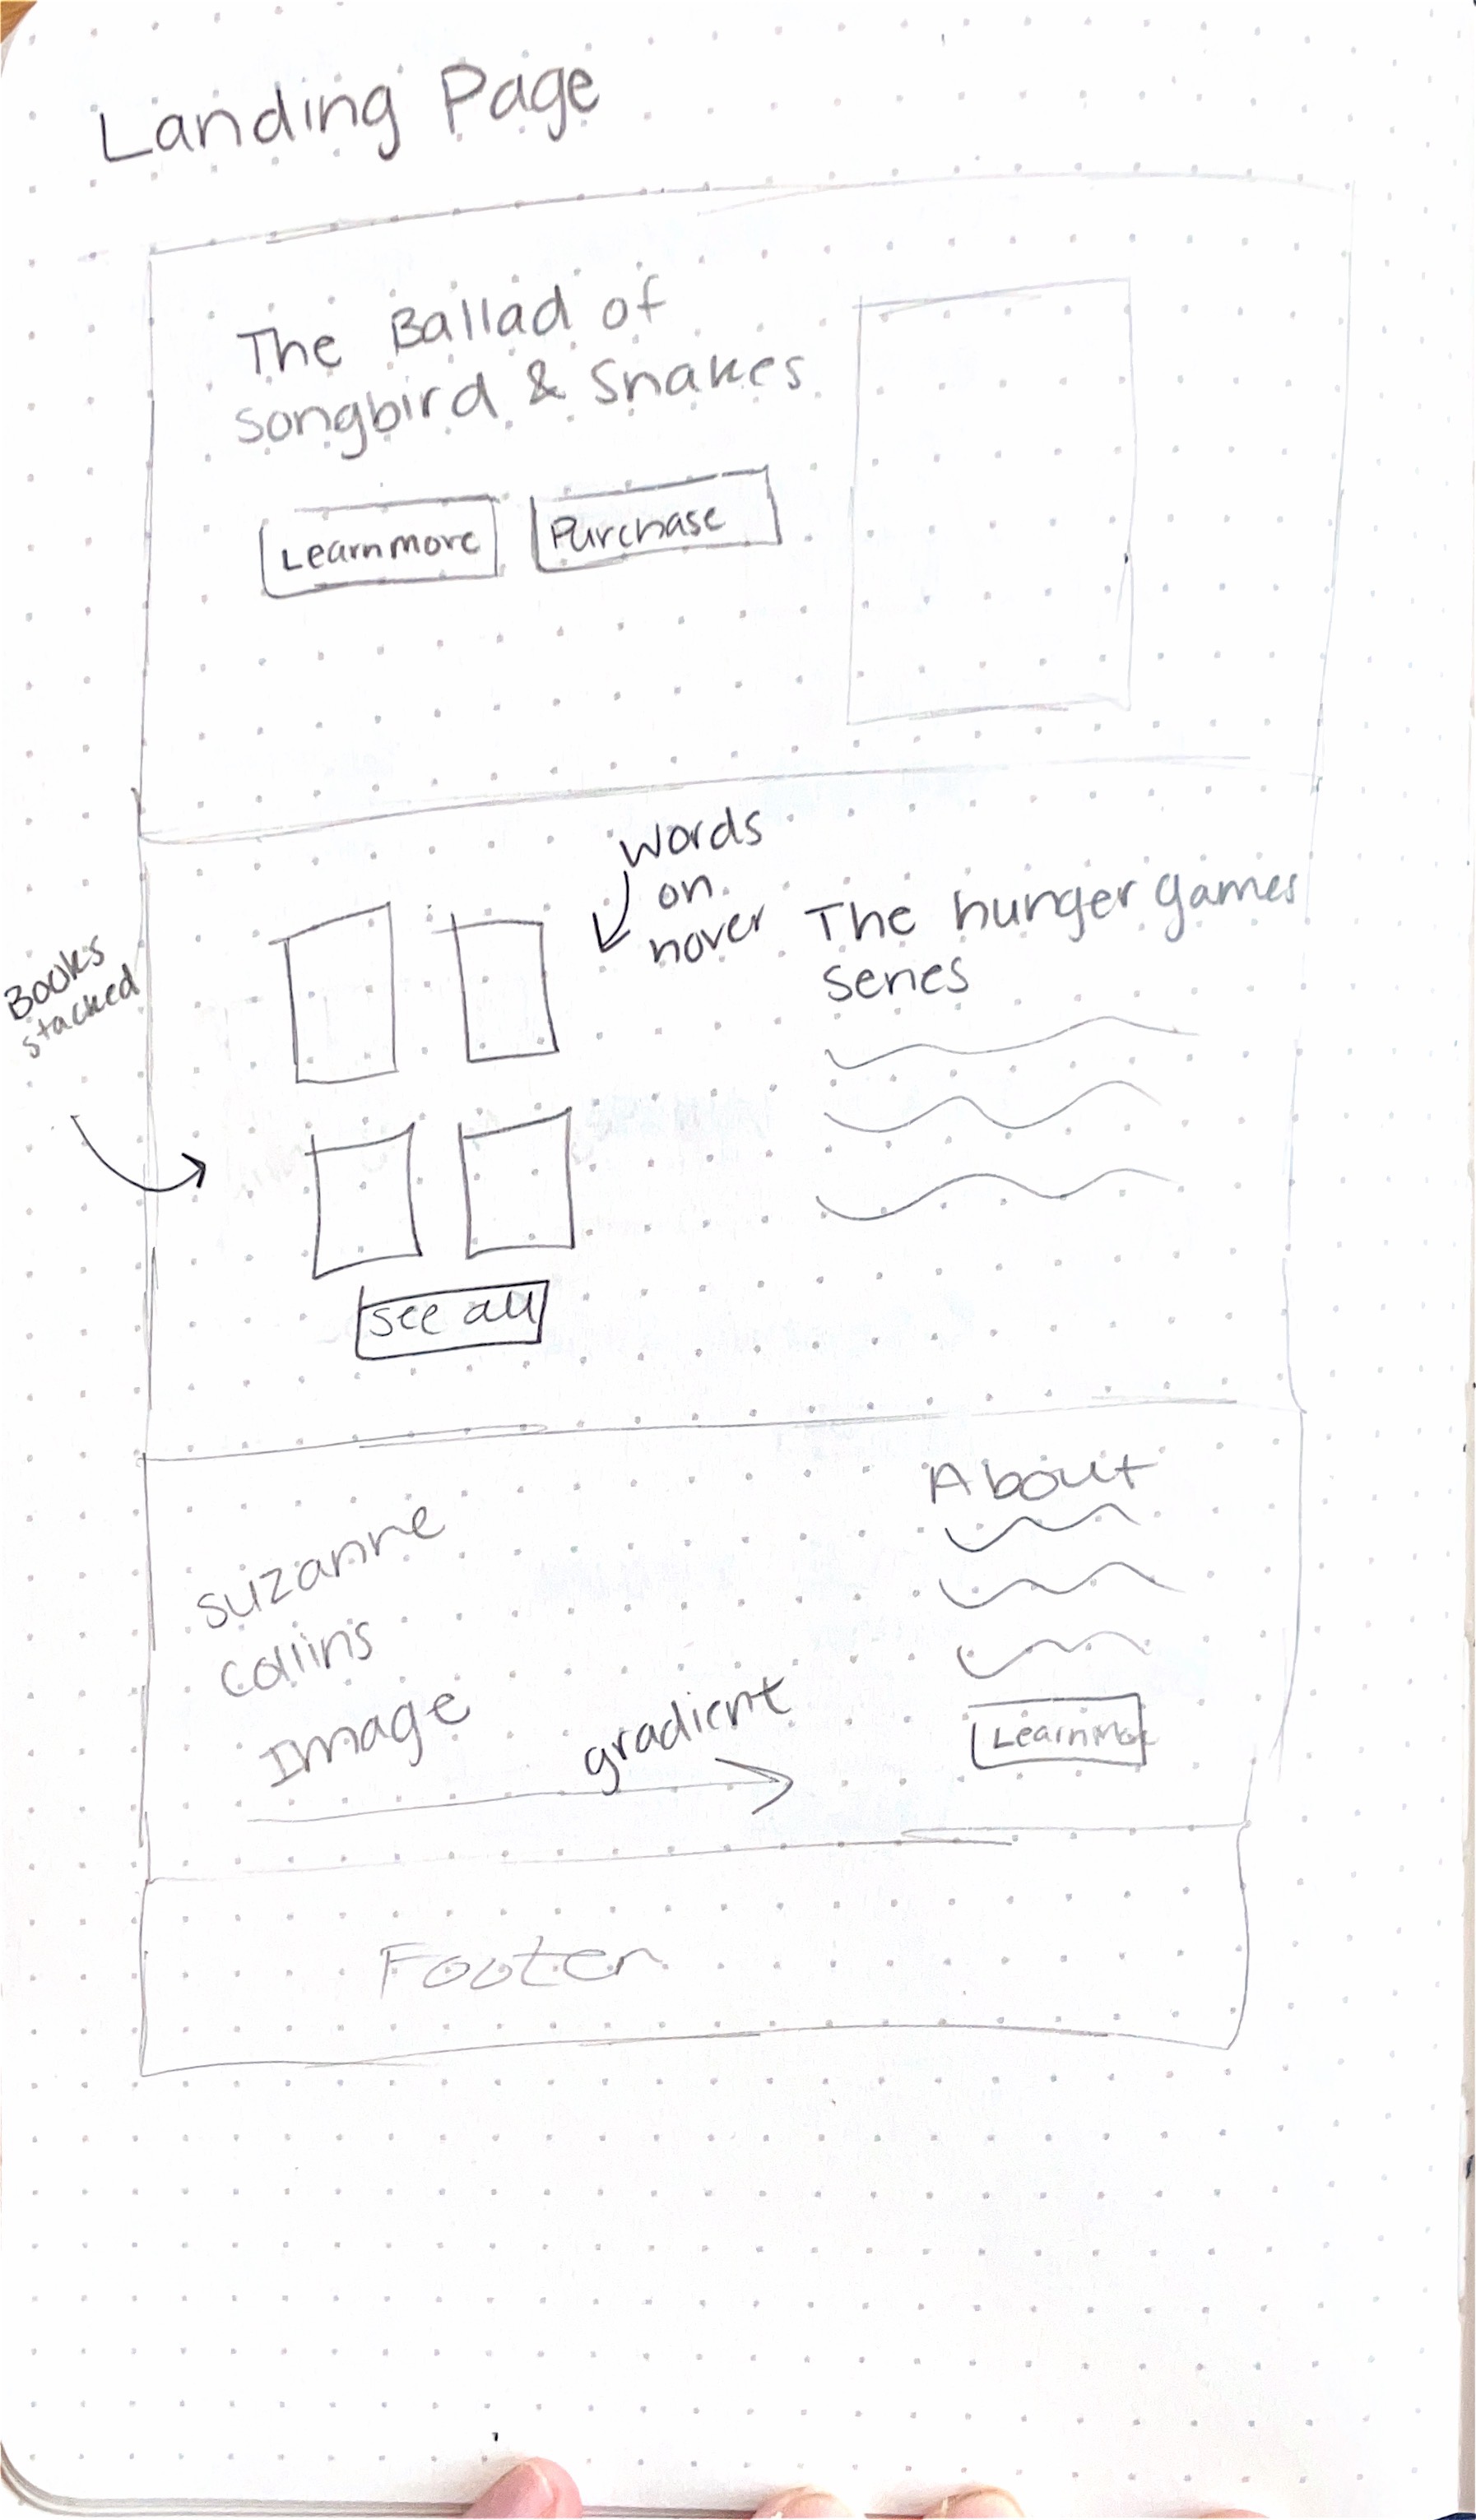 Landing Page
The Ballad of
songbird & Snakes
Learnmore
Purchase
words
on
hover
Books
stacked
The hunger games
series
see all
suzanne
collins
Image
gradient
About
Learnmore
Footer